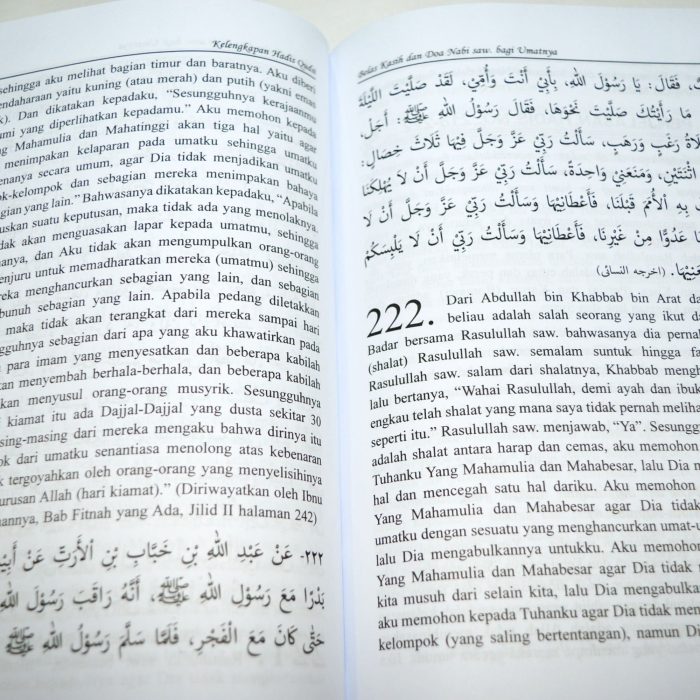 Kelengkapan Hadis Qudsi
sehingga aku melihat bagian timur dan baratnya. Aku diberi
endaharaan yaitu kuning (atau merah) dan putih (yakni emas
k). Dan dikatakan kepadaku, “Sesungguhnya kerajaanmu
umi yang diperlihatkan kepadamu.” Aku memohon kepada
ng Mahamulia dan Mahatinggi akan tiga hal yaitu agar
menimpakan kelaparan pada umatku sehingga umatku
enanya secara umum, agar Dia tidak menjadikan umatku
ok-kelompok dan sebagian mereka menimpakan bahaya
agian yang lain.” Bahwasanya dikatakan kepadaku, “Apabila
uskan suatu keputusan, maka tidak ada yang menolaknya.
dak akan menguasakan lapar kepada umatmu, sehingga
anya, dan Aku tidak akan mengumpulkan orang-orang
enjuru untuk memadharatkan mereka (umatmu) sehingga
reka menghancurkan sebagian yang lain, dan sebagian
bunuh sebagian yang lain. Apabila pedang diletakkan
maka tidak akan terangkat dari mereka sampai hari
gguhnya sebagian dari apa yang aku khawatirkan pada
para imam yang menyesatkan dan beberapa kabilah
kan menyembah berhala-berhala, dan beberapa kabilah
kan menyusul orang-orang musyrik. Sesungguhnya
kiamat itu ada Dajjal-Dajjal yang dusta sekitar 30
sing-masing dari mereka mengaku bahwa dirinya itu
ok dari umatku senantiasa menolong atas kebenaran
k tergoyahkan oleh orang-orang yang menyelisihinya
urusan Allah (hari kiamat).” (Diriwayatkan oleh Ibnu
nannya, Bab Fitnah yang Ada, Jilid II halaman 242)
٢٢٢- عَنْ عَبْدِ اللهِ بْنِ خَبَّابِ بْنِ الْأَرَتِّ عَنْ أَبِيْ
بَدْرًا مَعَ رَسُوْلِ اللهِ ﷺ، أَنَّهُ رَاقَبَ رَسُوْلَ اللهِ
حَتَّى كَانَ مَعَ الْفَجْرِ، فَلَمَّا سَلَّمَ رَسُوْلُ اللهِ ﷺ
Belas Kasih dan Doa Nabi saw. bagi Umatnya
فَقَالَ: يَا رَسُوْلَ اللهِ، بِأَبِيْ أَنْتَ وَأُمِّيْ، لَقَدْ صَلَّيْتَ اللَّيْلَةَ
مَا رَأَيْتُكَ صَلَّيْتَ نَحْوَهَا، فَقَالَ رَسُوْلُ اللهِ ﷺ: أَجَلْ،
لَاةُ رَغَبٍ وَرَهَبٍ، سَأَلْتُ رَبِّيْ عَزَّ وَجَلَّ فِيْهَا ثَلَاثَ خِصَالٍ:
اثْنَتَيْنِ، وَمَنَعَنِيْ وَاحِدَةً، سَأَلْتُ رَبِّيْ عَزَّ وَجَلَّ أَنْ لَا يُهْلِكَنَا
بِهِ الْأُمَمَ قَبْلَنَا، فَأَعْطَانِيْهَا وَسَأَلْتُ رَبِّيْ عَزَّ وَجَلَّ أَنْ لَا
نَا عَدُوًّا مِنْ غَيْرِنَا، فَأَعْطَانِيْهَا وَسَأَلْتُ رَبِّيْ أَنْ لَا يَلْبِسَكُمْ
عَنِيْهَا. (اخرجه النسائى)
222. Dari Abdullah bin Khabbab bin Arat da
beliau adalah salah seorang yang ikut da
Badar bersama Rasulullah saw. bahwasanya dia pernah
(shalat) Rasulullah saw. semalam suntuk hingga fa
Rasulullah saw. salam dari shalatnya, Khabbab mengh
lalu bertanya, “Wahai Rasulullah, demi ayah dan ibuk
engkau telah shalat yang mana saya tidak pernah meliha
seperti itu.” Rasulullah saw. menjawab, “Ya”. Sesunggu
adalah shalat antara harap dan cemas, aku memohon
Tuhanku Yang Mahamulia dan Mahabesar, lalu Dia me
hal dan mencegah satu hal dariku. Aku memohon
Yang Mahamulia dan Mahabesar agar Dia tidak
umatku dengan sesuatu yang menghancurkan umat-u
lalu Dia mengabulkannya untukku. Aku memohon
Yang Mahamulia dan Mahabesar agar Dia tidak m
kita musuh dari selain kita, lalu Dia mengabulka
aku memohon kepada Tuhanku agar Dia tidak men
kelompok (yang saling bertentangan), namun Di